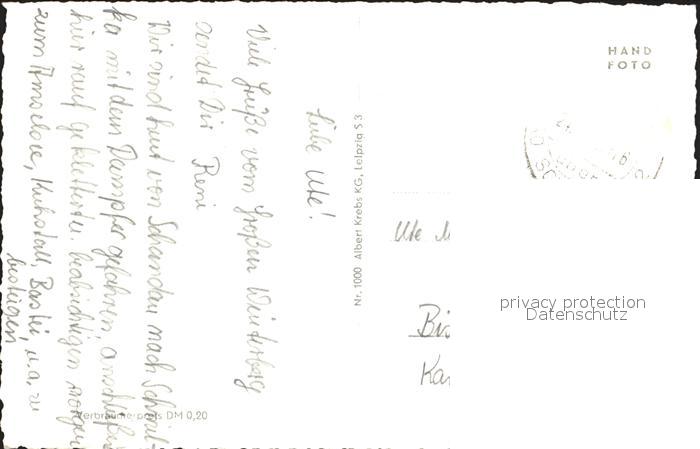 Liebe Ute!
Viele Grüße vom Großen Winterberg
sendet Dir Reni
Wir sind heut von Schandau nach Schmil-
ka mit dem Dampfer gefahren, anschließend
hier rauf geklettert u. beabsichtigen morgen
zum Kuhstall, Bastei, u.a. zu
besteigen
Verbraucherpreis DM 0,20
Nr. 1000 Albert Krebs KG, Leipzig S 3
HAND
FOTO
Ute M
privacy protection
Datenschutz